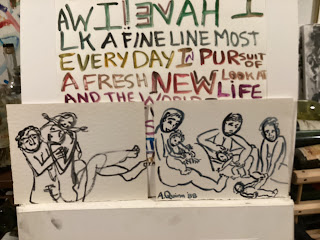 I HAVE
LK A FINE LINE MOST
EVERY DAY IN PURSUIT OF
A FRESH NEW LOOK AT LIFE
AND THE WORLD
A.Quinn '08